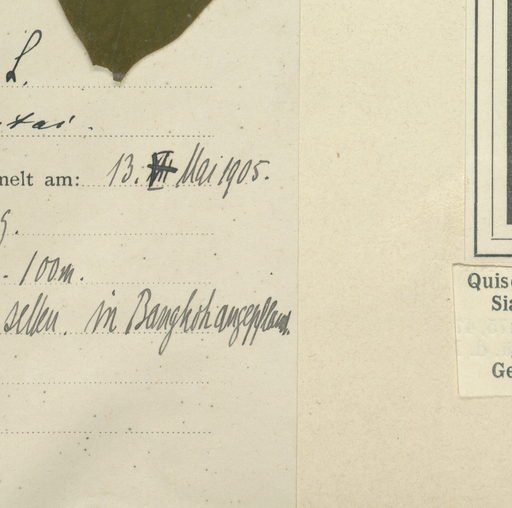 L.
tai.
melt am: 13. VII Mai 1905.
g.
- 100m.
selten. in Bangkok angepflanzt.
Quis
Sia
Ge